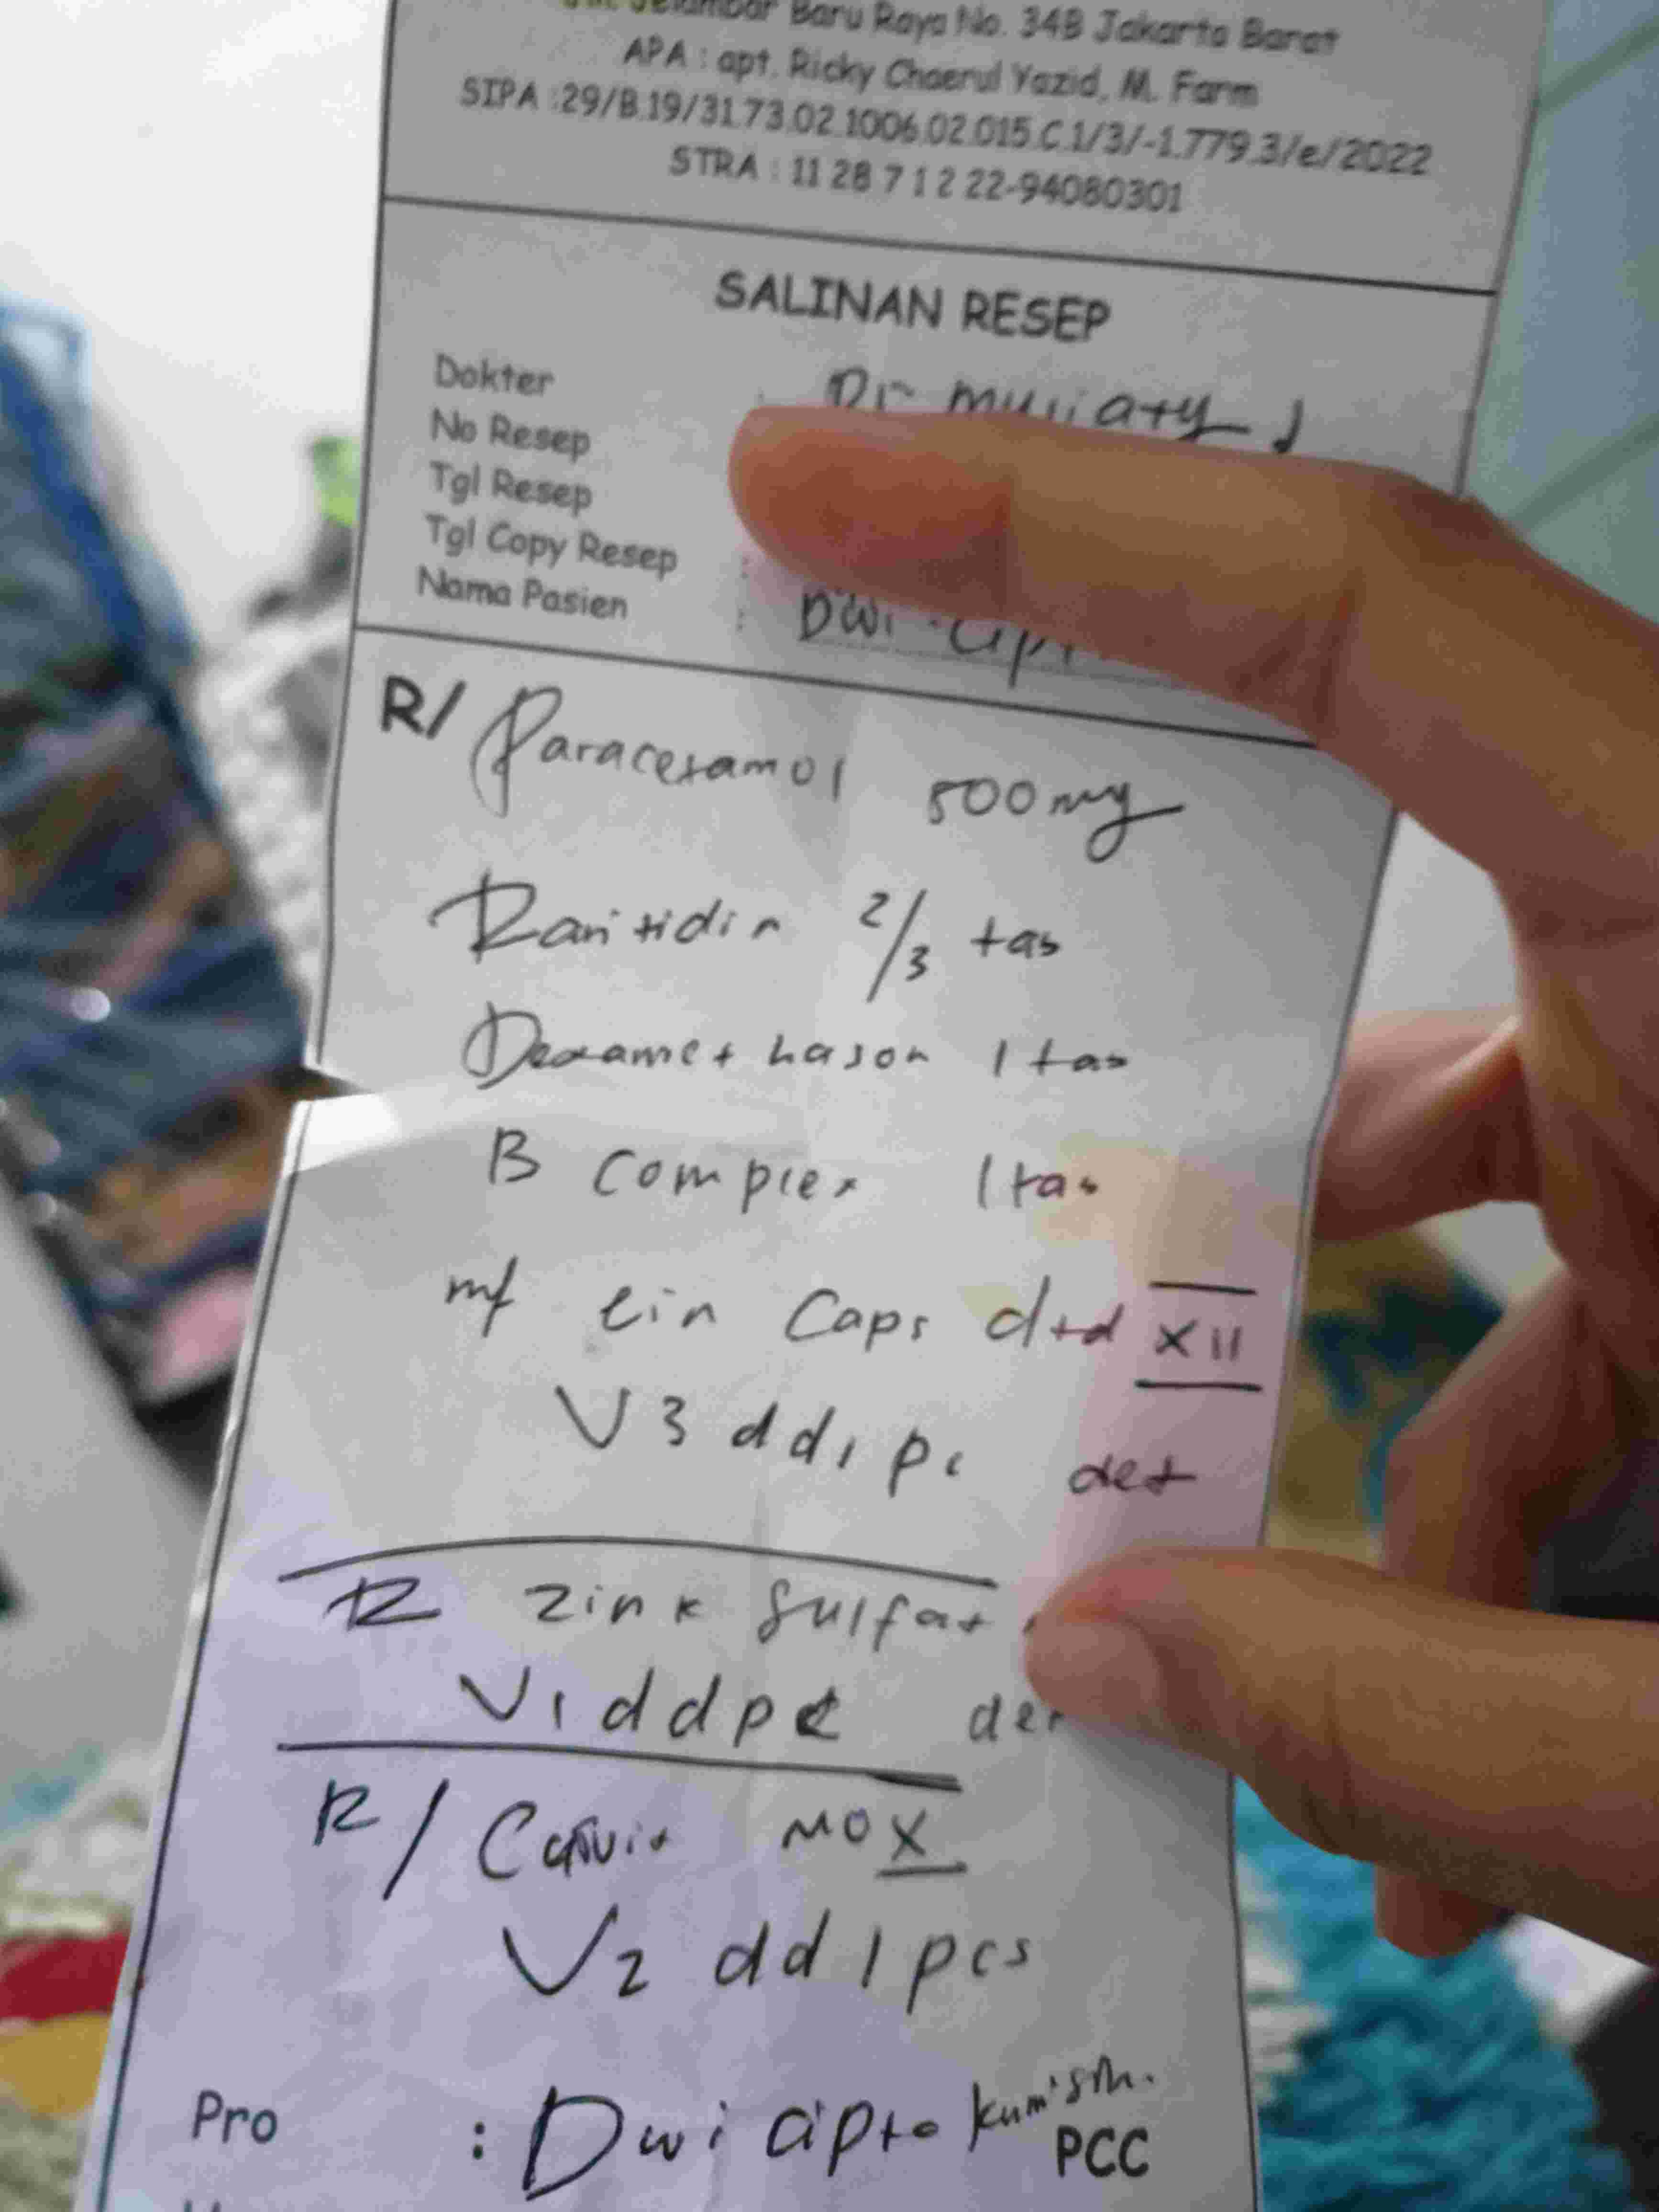 Jelambar Baru Raya No. 34B Jakarta Barat
APA : apt. Ricky Chaerul Yazid, M. Farm
SIPA :29/B.19/31.73.02.1006.02.015.C.1/3/-1.779.3/e/2022
STRA : 11 28 7 1 2 22-94080301
SALINAN RESEP
Dokter : Dr
No Resep
Tgl Resep
Tgl Copy Resep :
Nama Pasien : Dwi
R/ Paracetamol 500 mg
Ranitidin 2/3 tab
Dexamethason 1 tab
B Complex 1 tab
mf Caps dtd XII
3 dd 1 det
R Zink Sulfat
1 dd
R/ mox
2 dd 1 pcs
Pro : Dwi Cipto
PCC